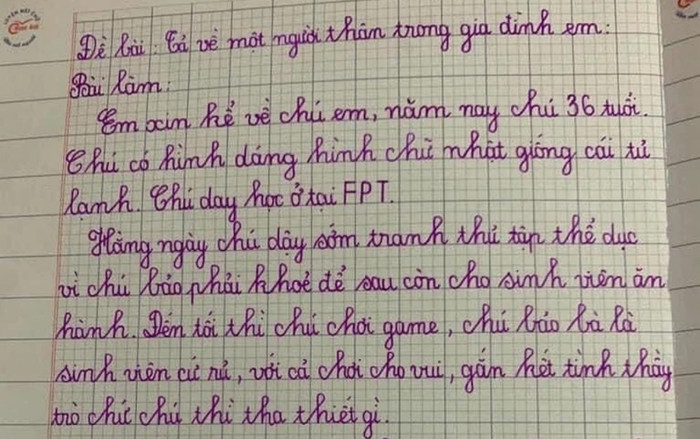 Đề bài: Tả về một người thân trong gia đình em:
Bài làm:
Em xin kể về chú em, năm nay chú 36 tuổi.
Chú có hình dáng hình chữ nhật giống cái tủ
lạnh. Chú dạy học ở tại FPT.
Hằng ngày chú dậy sớm tranh thủ tập thể dục
vì chú bảo phải khoẻ để sau còn cho sinh viên ăn
hành. Đến tối thì chú chơi game, chú bảo bà là
sinh viên cứ rủ, với cả chơi cho vui, gắn kết tình thầy
trò chứ chú thì tha thiết gì.